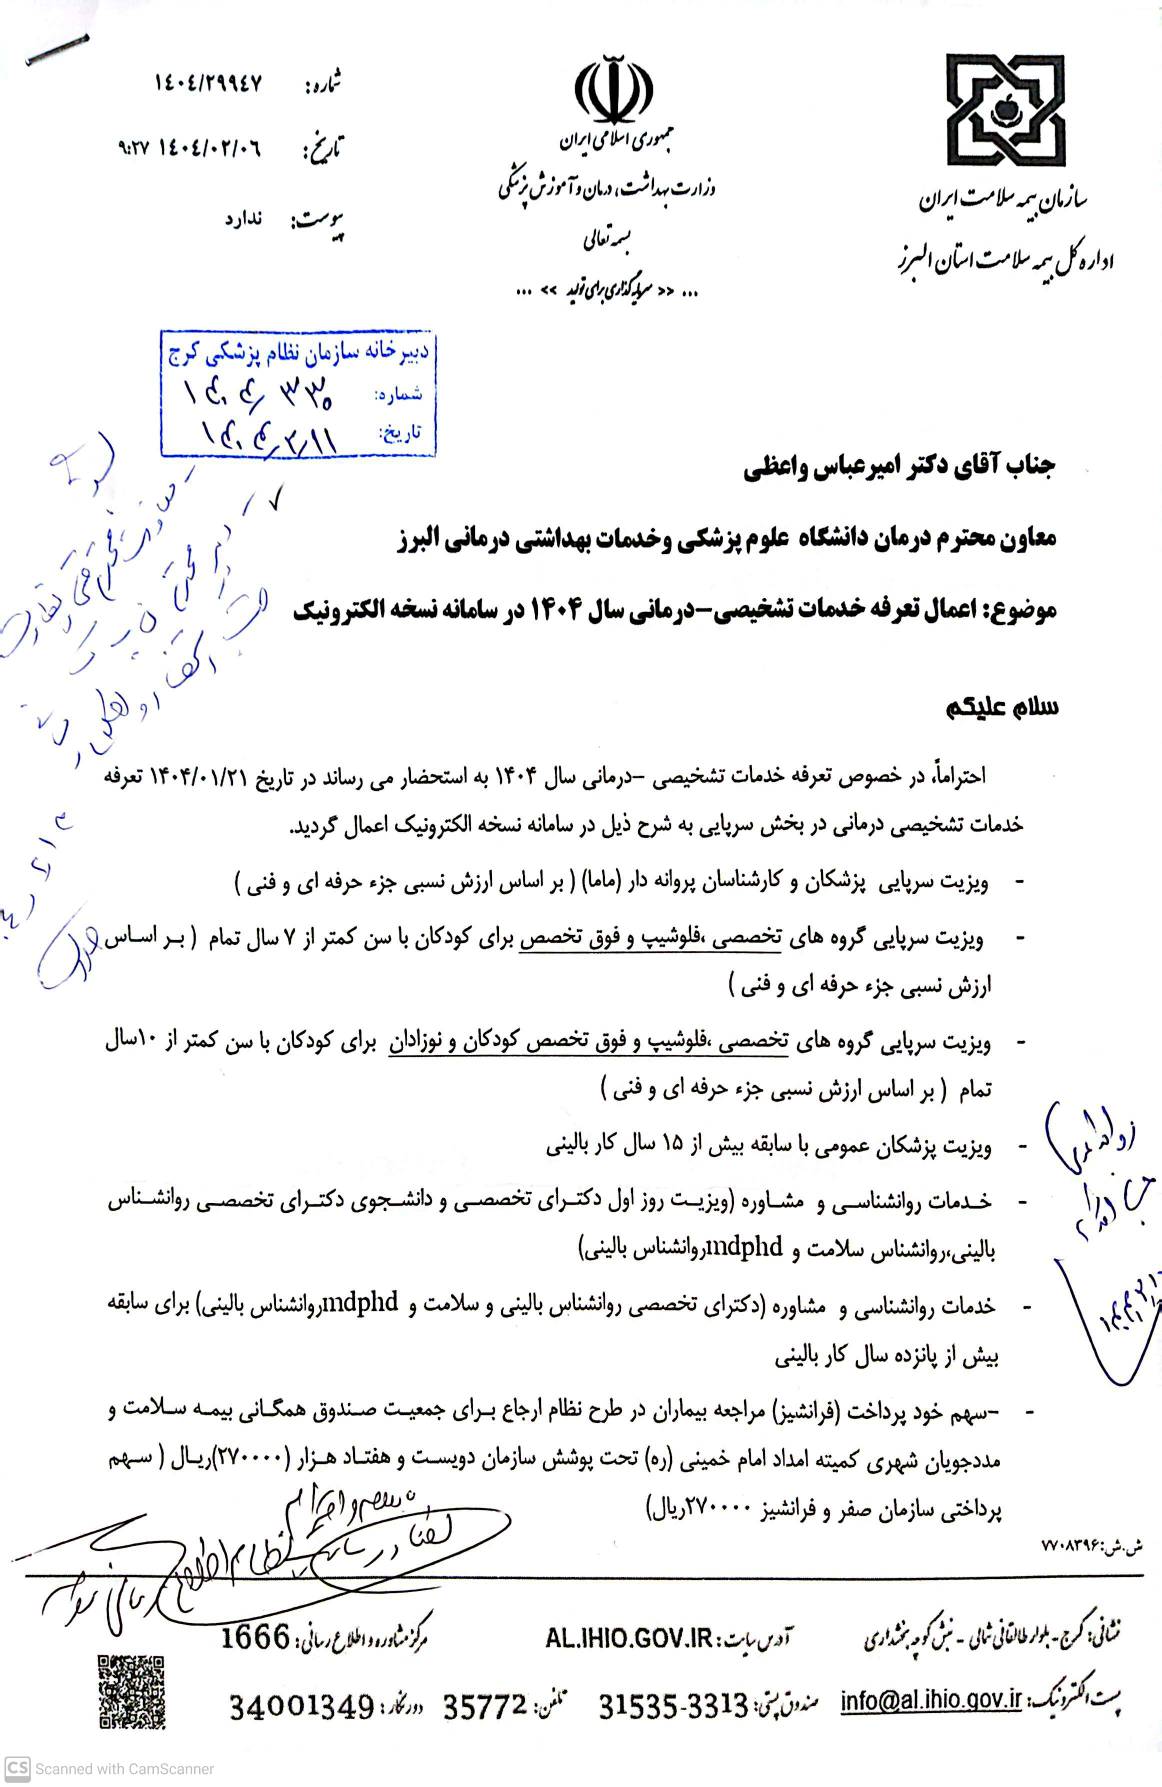 شماره: ۱۴۰۴/۲۹۹۴۷
تاریخ: ۱۴۰۴/۰۲/۰۶ ۹:۲۷
پیوست: ندارد
جمهوری اسلامی ایران
وزارت بهداشت، درمان و آموزش پزشکی
بسمه تعالی
... << سرمایه گذاری برای تولید >> ...
سازمان بیمه سلامت ایران
اداره کل بیمه سلامت استان البرز
دبیرخانه سازمان نظام پزشکی کرج
شماره: ۱۴۰۴/۳۳۰
تاریخ: ۱۴۰۴/۲/۱۱
جناب آقای دکتر امیرعباس واعظی
معاون محترم درمان دانشگاه علوم پزشکی وخدمات بهداشتی درمانی البرز
موضوع: اعمال تعرفه خدمات تشخیصی-درمانی سال ۱۴۰۴ در سامانه نسخه الکترونیک
سلام علیکم
احتراماً، در خصوص تعرفه خدمات تشخیصی -درمانی سال ۱۴۰۴ به استحضار می رساند در تاریخ ۱۴۰۴/۰۱/۲۱ تعرفه
خدمات تشخیصی درمانی در بخش سرپایی به شرح ذیل در سامانه نسخه الکترونیک اعمال گردید.
- ویزیت سرپایی پزشکان و کارشناسان پروانه دار (ماما) ( بر اساس ارزش نسبی جزء حرفه ای و فنی )
- ویزیت سرپایی گروه های تخصصی ،فلوشیپ و فوق تخصص برای کودکان با سن کمتر از ۷ سال تمام ( بر اساس
ارزش نسبی جزء حرفه ای و فنی )
- ویزیت سرپایی گروه های تخصصی ،فلوشیپ و فوق تخصص کودکان و نوزادان برای کودکان با سن کمتر از ۱۰سال
تمام ( بر اساس ارزش نسبی جزء حرفه ای و فنی )
- ویزیت پزشکان عمومی با سابقه بیش از ۱۵ سال کار بالینی
- خدمات روانشناسی و مشاوره (ویزیت روز اول دکترای تخصصی و دانشجوی دکترای تخصصی روانشناس
بالینی،روانشناس سلامت و mdphdروانشناس بالینی)
- خدمات روانشناسی و مشاوره (دکترای تخصصی روانشناس بالینی و سلامت و mdphdروانشناس بالینی) برای سابقه
بیش از پانزده سال کار بالینی
- -سهم خود پرداخت (فرانشیز) مراجعه بیماران در طرح نظام ارجاع برای جمعیت صندوق همگانی بیمه سلامت و
مددجویان شهری کمیته امداد امام خمینی (ره) تحت پوشش سازمان دویست و هفتاد هزار (۲۷۰۰۰۰)ریال ( سهم
پرداختی سازمان صفر و فرانشیز ۲۷۰۰۰۰ریال)
ش.ش:۷۷۰۸۳۹۶
نشانی: کرج - بلوار طالقانی شمالی - نبش کوچه بخشداری
آدرس سایت: AL.IHIO.GOV.IR
مرکز مشاوره و اطلاع رسانی: 1666
پست الکترونیک: info@al.ihio.gov.ir
صندوق پستی: 31535-3313
تلفن: 35772
دورنگار: 34001349
CS Scanned with CamScanner